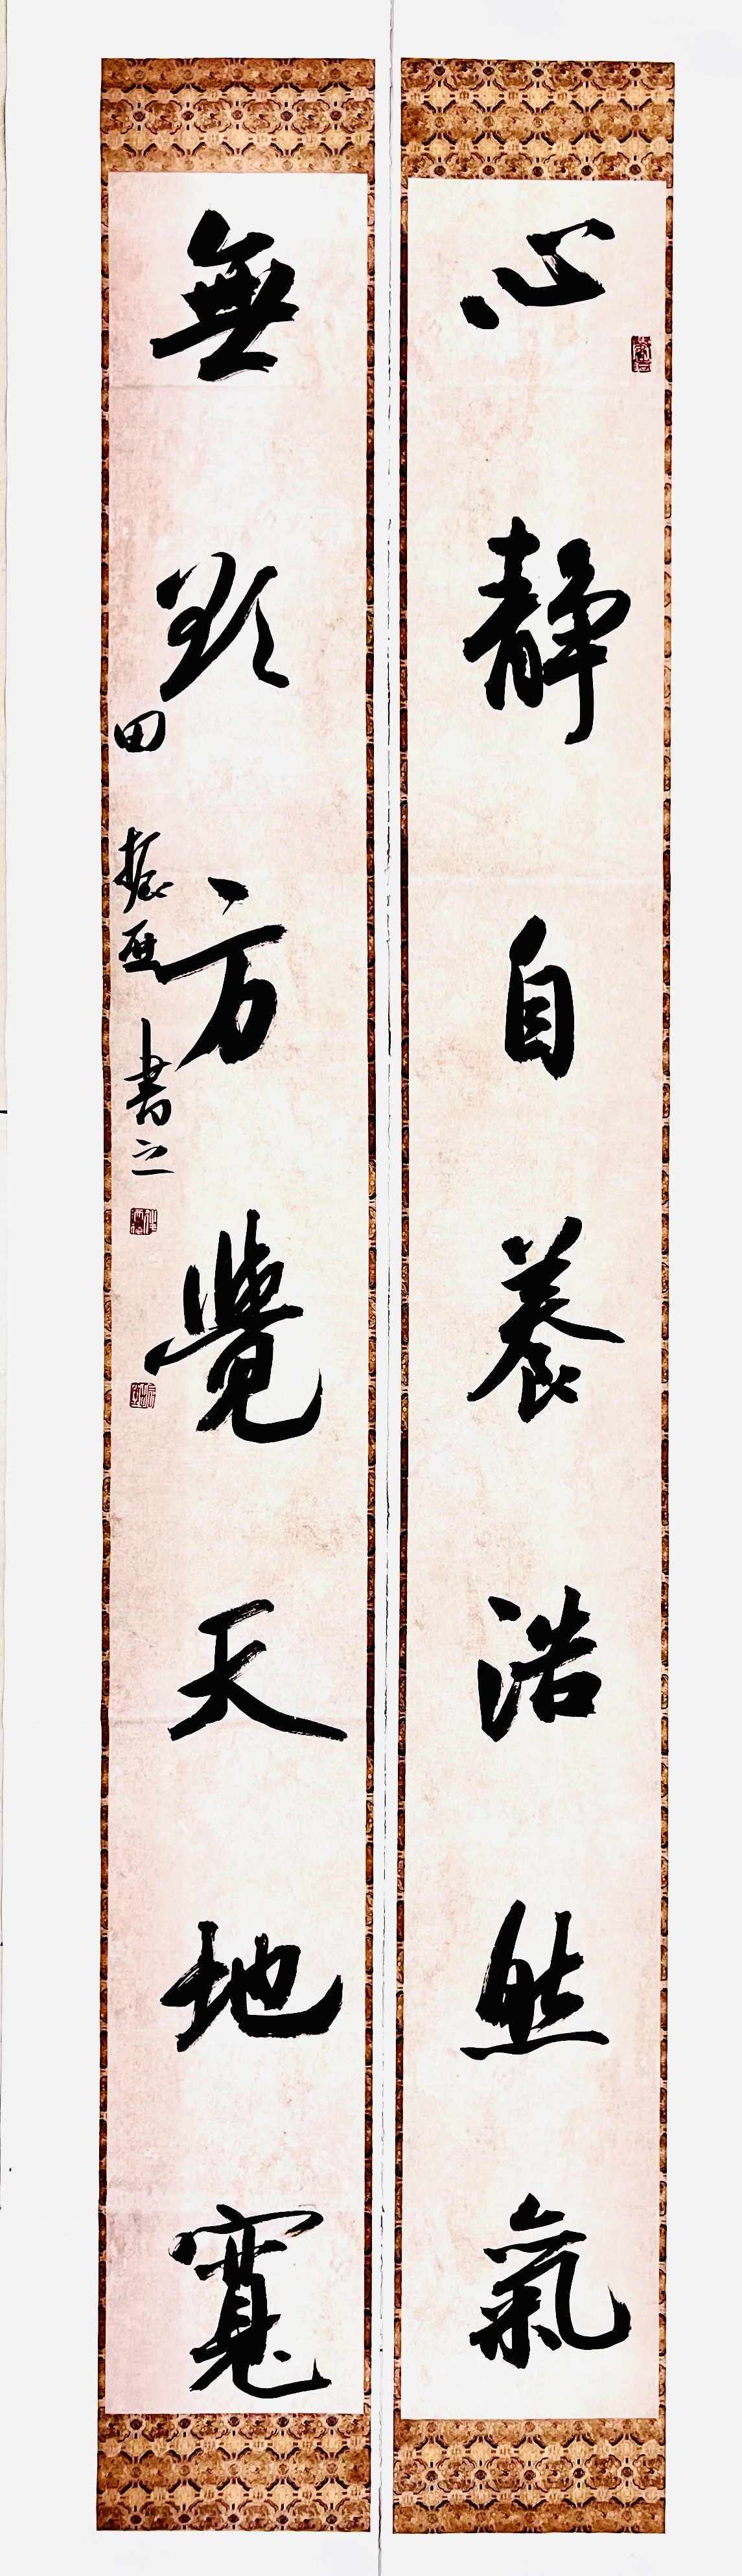 心靜自養浩然氣
無欲方覺天地寬
田振亞書之